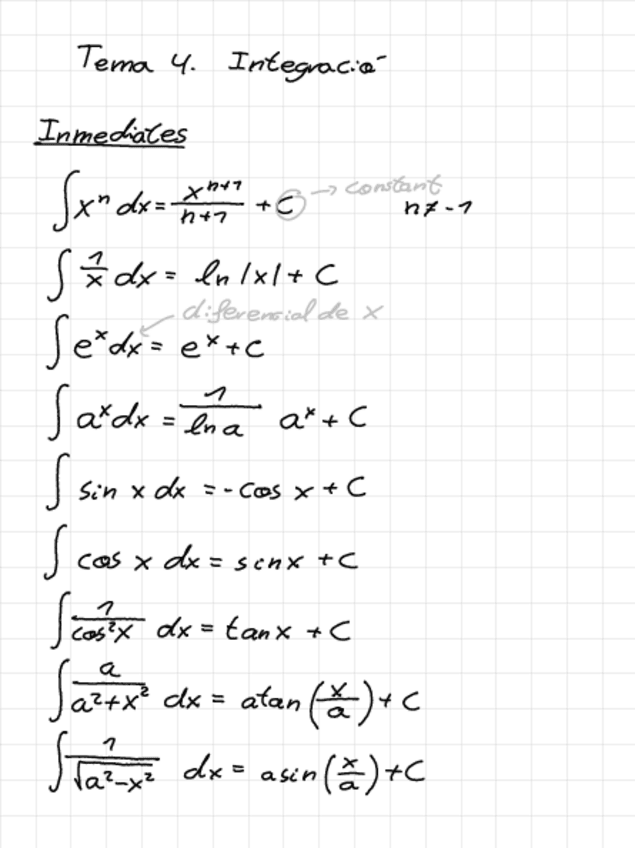 Tema 4. Integració
Inmediates
∫ xⁿ dx = xⁿ⁺¹/(n+1) + C → constant n ≠ -1
∫ 1/x dx = ln |x| + C
diferencial de x
∫ eˣ dx = eˣ + C
∫ aˣ dx = 1/(ln a) aˣ + C
∫ sin x dx = - cos x + C
∫ cos x dx = sin x + C
∫ 1/(cos²x) dx = tan x + C
∫ a/(a²+x²) dx = atan (x/a) + C
∫ 1/√(a²-x²) dx = asin (x/a) + C